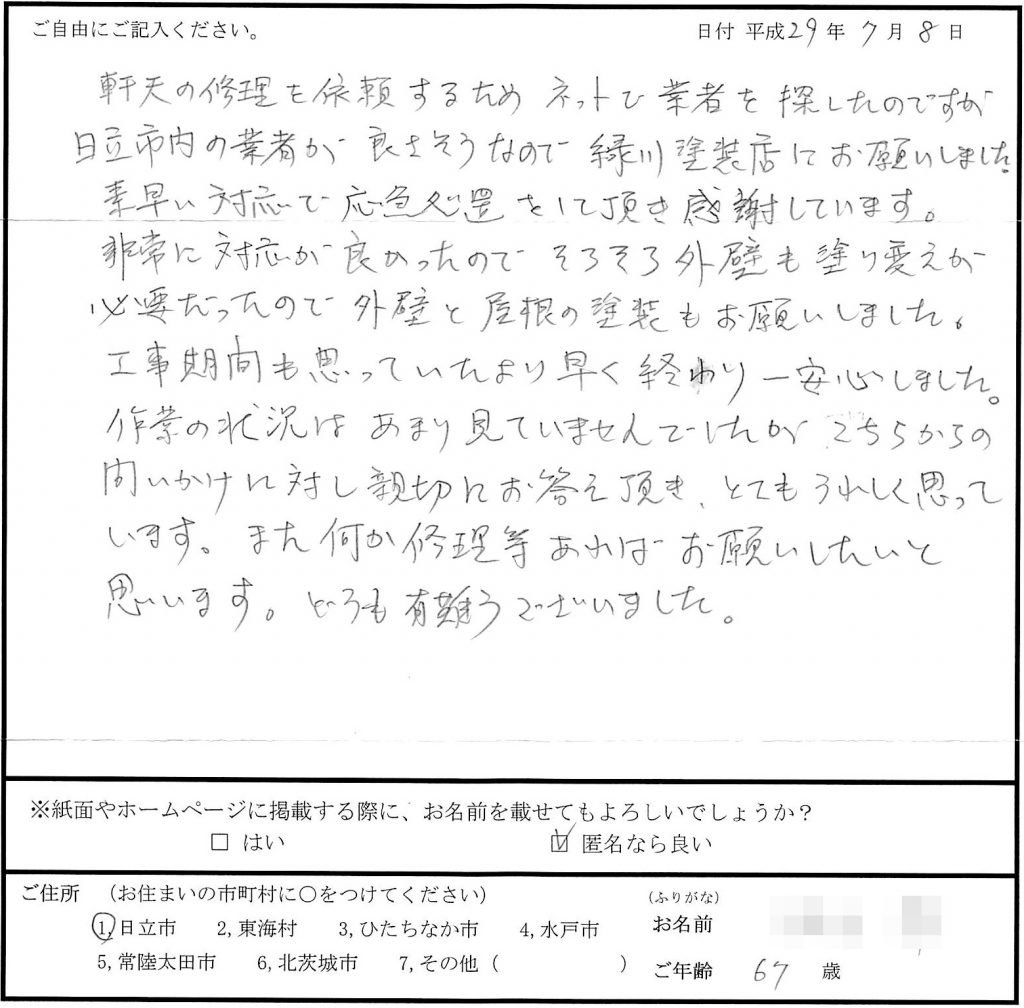 ご自由にご記入ください。
日付 平成29年 7月 8日
軒天の修理を依頼するため ネットで業者を探したのですが
日立市内の業者が 良さそうなので 緑川塗装店にお願いしました。
素早い対応で 応急処置をして頂き感謝しています。
非常に対応が良かったので そろそろ外壁も塗り変えが
必要だったので 外壁と屋根の塗装もお願いしました。
工事期間も思っていたより早く終わり一安心しました。
作業の状況はあまり見ていませんでしたが こちらからの
問いかけに対し親切にお答え頂き、とてもうれしく思って
います。また何か修理等あればお願いしたいと
思います。どうも有難うございました。
※紙面やホームページに掲載する際に、お名前を載せてもよろしいでしょうか?
□ はい ☑ 匿名なら良い
ご住所 (お住まいの市町村に○をつけてください)
1,日立市 2,東海村 3,ひたちなか市 4,水戸市
5,常陸太田市 6,北茨城市 7,その他 ( )
(ふりがな)
お名前
ご年齢 67 歳